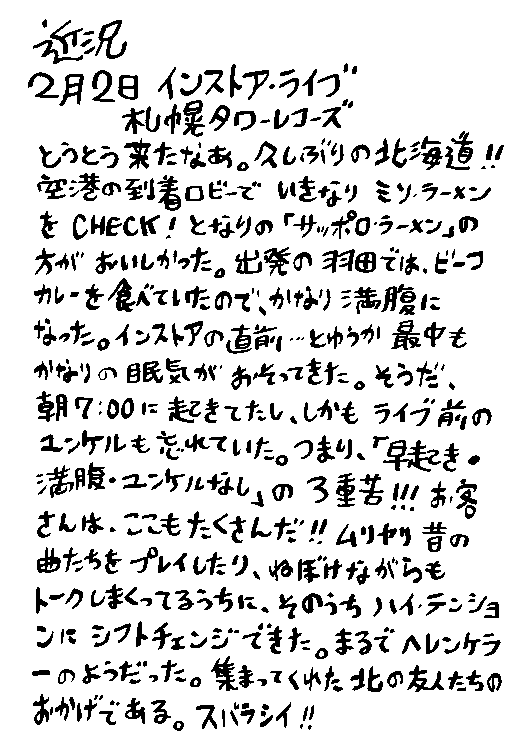 近況
2月2日 インストア・ライブ
札幌タワーレコーズ
とうとう来たなあ。久しぶりの北海道!!
空港の到着ロビーで いきなり ミソ・ラーメン
を CHECK! となりの「サッポロ・ラーメン」の
方が おいしかった。出発の 羽田では、ビーフ
カレーを食べていたので、かなり満腹に
なった。インストアの直前…とゆうか 最中も
かなりの眠気が おそってきた。そうだ、
朝7:00に起きてたし、しかも ライブ前の
ユンケルも忘れていた。つまり、「早起き・
満腹・ユンケルなし」の 3重苦!!! お客
さんは、ここもたくさんだ!! ムリヤリ 昔の
曲たちを プレイしたり、ねぼけながらも
トークしまくってるうちに、そのうち ハイ・テンショ
ンに シフトチェンジできた。まるで ヘレンケラ
ーのようだった。集まってくれた 北の友人たちの
おかげである。スバラシイ!!